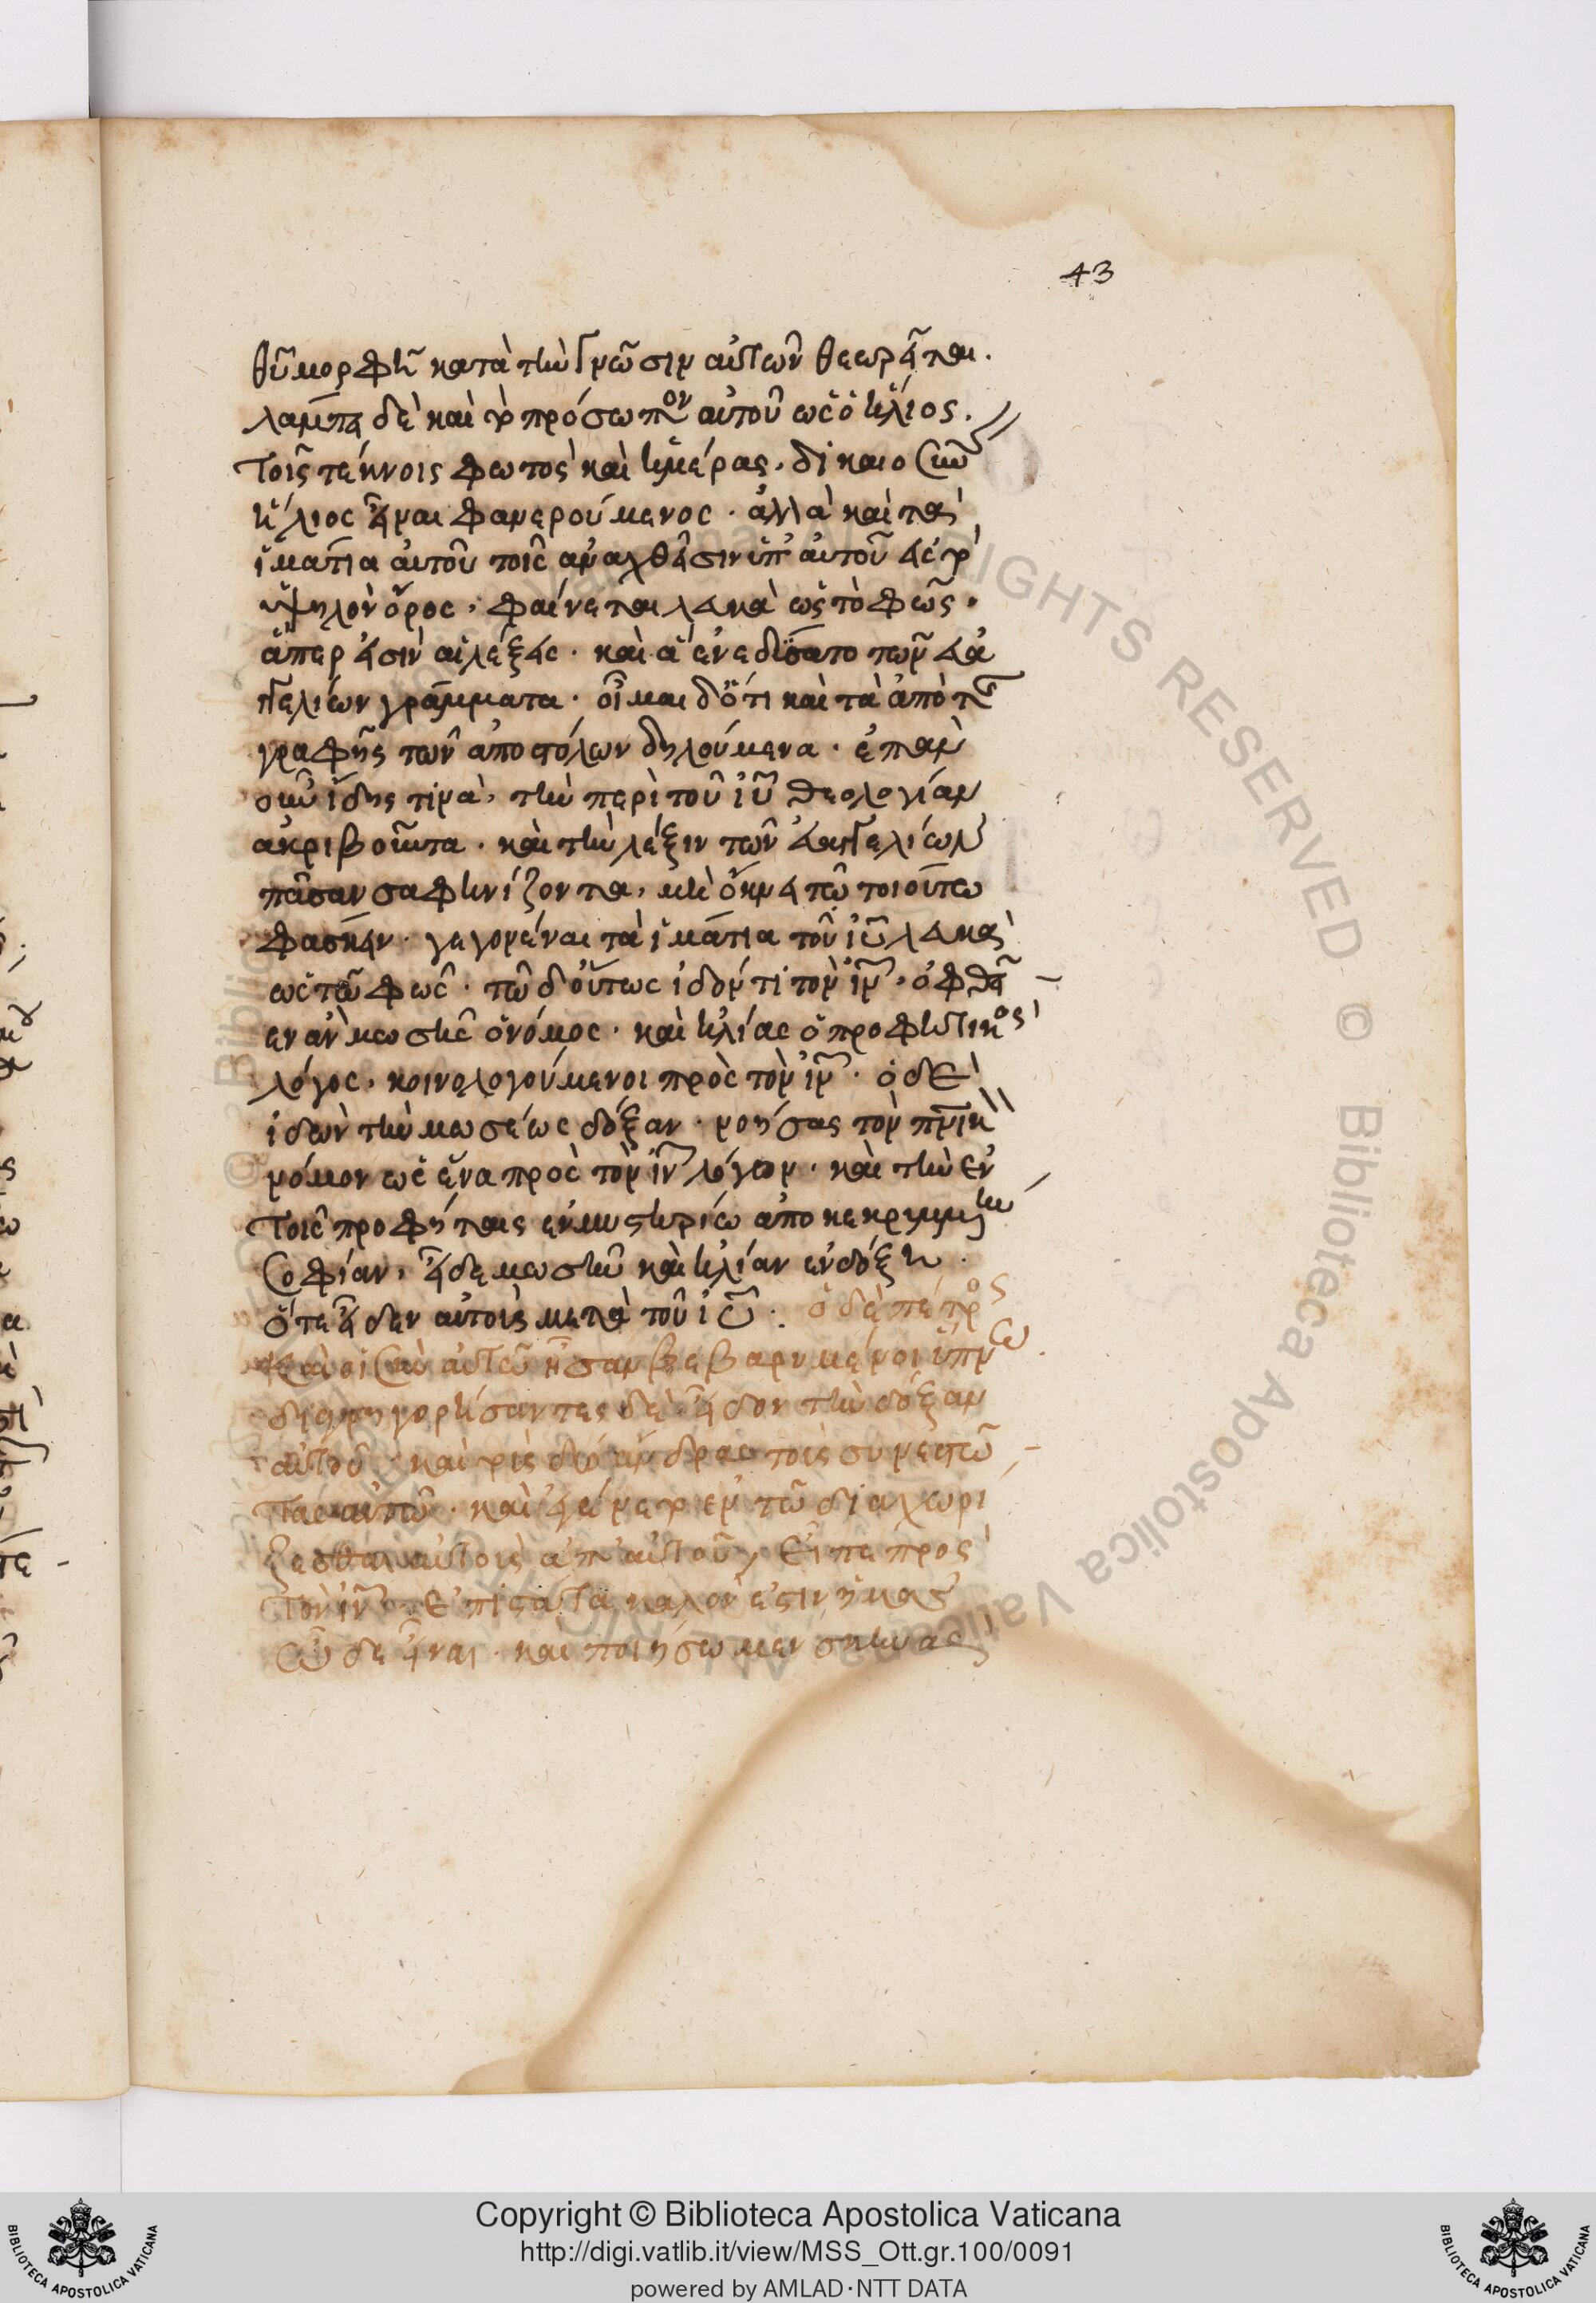 43
θῦ μορφῆ κατὰ τὴν γνῶσιν αὐτῶν θεωρεῖται.
λάμπει δὲ καὶ τὸ πρόσωπον αὐτοῦ ὡς ὁ ἥλιος.
τοῖς τέκνοις φωτὸς καὶ ἡμέρας, δικαιοσύν
ἥλιος εἶναι φανερούμενος. ἀλλὰ καὶ τὰ
ἱμάτια αὐτοῦ τοῖς ἀναχθεῖσιν ὑπ' αὐτοῦ εἰς τὸ
ὑψηλὸν ὄρος, φαίνεται λευκὰ ὡς τὸ φῶς.
ἅπερ εἰσὶν αἱ λέξεις. καὶ ἃ ἐνεδύσατο τῶν εὐα
γγελίων γράμματα. οἶμαι δ' ὅτι καὶ τὰ ἀπὸ τῆς
γραφῆς τῶν ἀποστόλων δηλούμενα. ἐπὰν
οὖν ἴδης τινὰ, τὴν περὶ τοῦ ἰῦ θεολογίαν
ἀκριβοῦντα. καὶ τὴν λέξιν τῶν εὐαγγελίων
πᾶσαν σαφηνίζοντα, μὴ ὄκνει τῶ τοιούτω
φάσκειν. γεγονέναι τὰ ἱμάτια τοῦ ἰῦ λευκὰ
ὡς τῶ φῶς. τῶ δ' οὕτως ἰδόντι τὸν ἰν, ὀφθεῖ
εν ἂν μωσῆς ὁ νόμος. καὶ ἡλίας ὁ προφητικὸς
λόγος, κοινολογούμενοι πρὸς τὸν ἰν. ὁ δὲ
ἰδὼν τὴν μωσέως δόξαν. νοήσας τὸν πνικ
νόμον ὡς ἕνα πρὸς τὸν ἰν λόγον. καὶ τὴν ἐν
τοῖς προφήταις ἐν μυστηρίω ἀποκεκρυμμένην
σοφίαν, εἶδε μωσῆν καὶ ἡλίαν ἐν δόξη.
ὅτε εἶδεν αὐτοὺς μετὰ τοῦ ἰῦ. ὁ δὲ πέτρος
καὶ οἱ σὺν αὐτῶ ἦσαν βεβαρημένοι ὕπνω.
διαγρηγορήσαντες δὲ. εἶδον τὴν δόξαν
αὐτοῦ. καὶ τοὺς δύο ἄνδρας τοὺς συνεστῶ
τας αὐτῶ. καὶ ἐγένετο ἐν τῶ διαχωρί
ζεσθαι αὐτοὺς ἀπ' αὐτοῦ, εἶπε πρὸς
τὸν ἰν. ἐπιστάτα καλόν ἐστιν ἡμᾶς
ὧδε εἶναι. καὶ ποιήσωμεν σκηνὰς
Copyright © Biblioteca Apostolica Vaticana
http://digi.vatlib.it/view/MSS_Ott.gr.100/0091
powered by AMLAD·NTT DATA